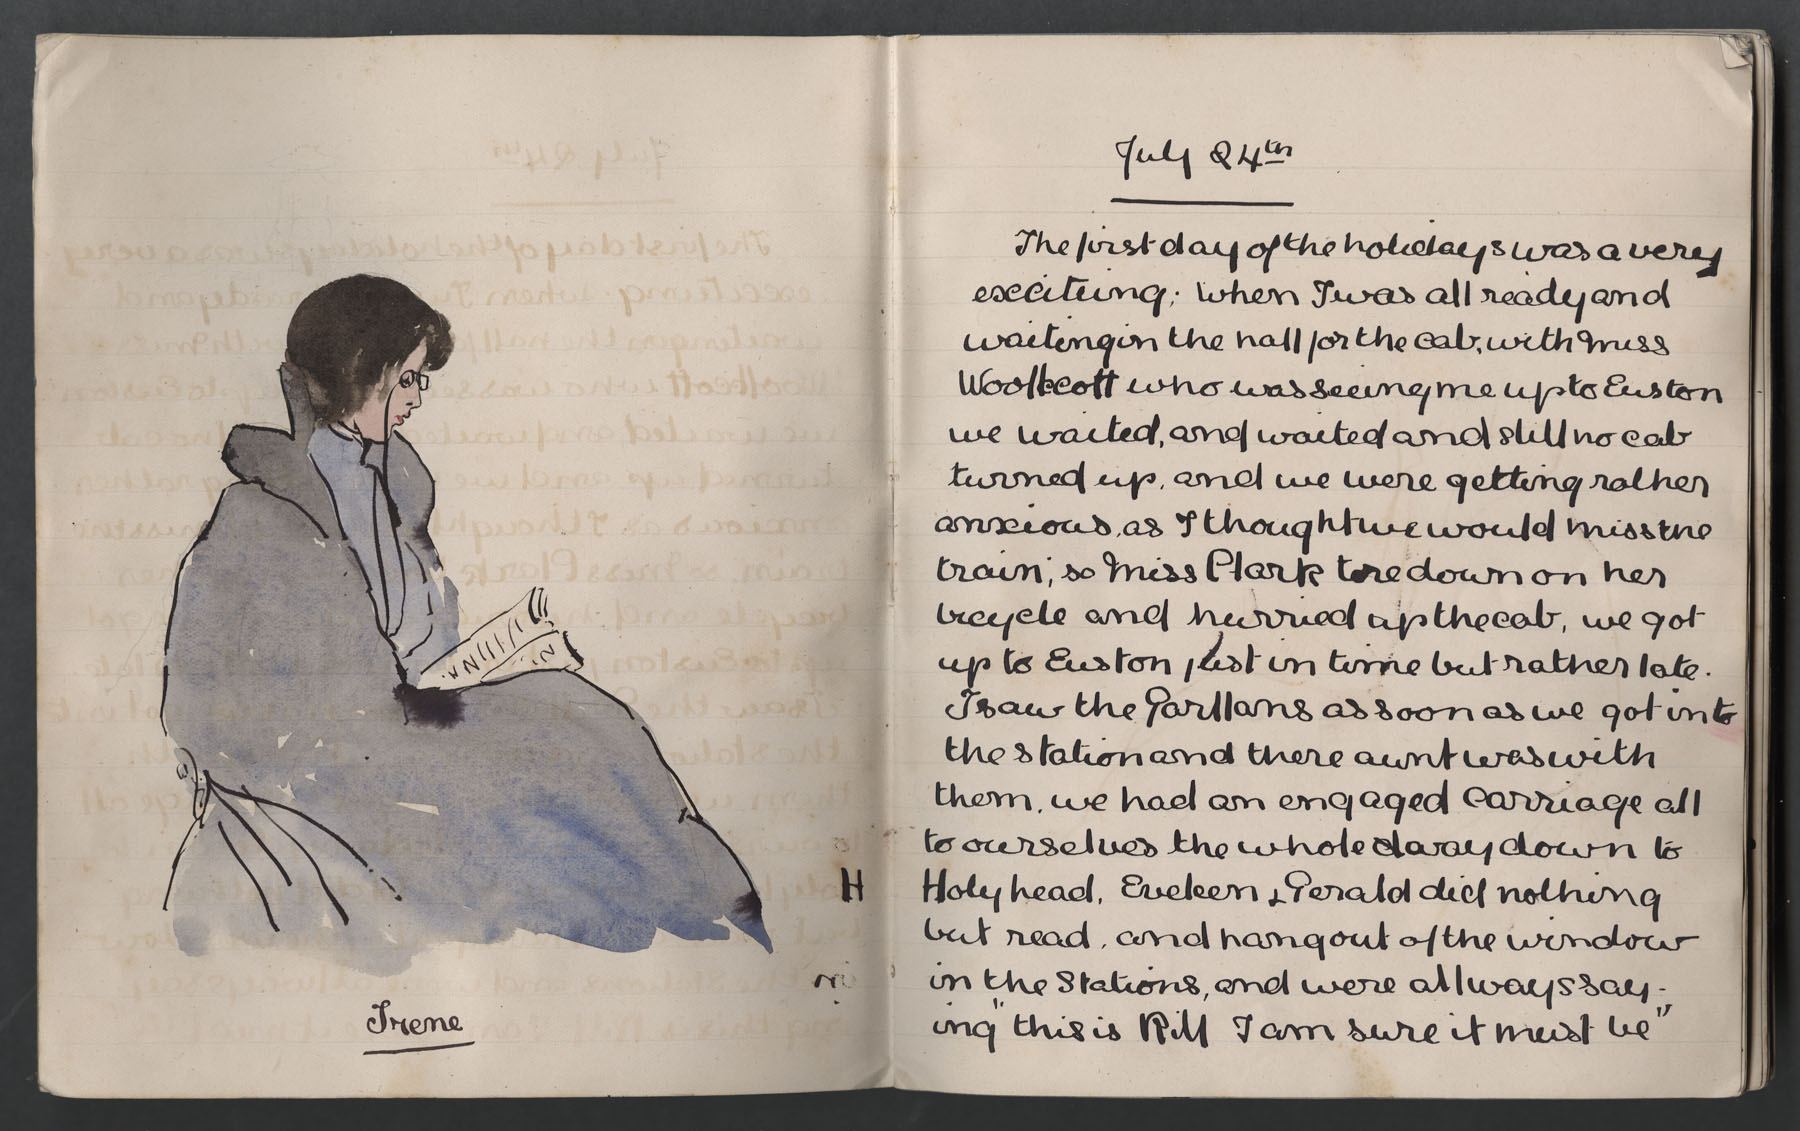 Irene
July 24th
The first day of the holidays was a very
exciteing; when I was all ready and
waiting in the hall for the cab, with Miss
Woollcott who was seeing me up to Euston
we waited, and waited and still no cab
turned up, and we were getting rather
anxious, as I thought we would miss the
train; so Miss Clark tore down on her
bicycle and hurried up the cab, we got
up to Euston just in time but rather late.
I saw the Garllans as soon as we got into
the station and there aunt was with
them, we had an engaged carriage all
to ourselves the whole way down to
Holyhead, Eveleen & Gerald did nothing
but read, and hang out of the window
in the Stations, and were allways say-
ing "this is Rill I am sure it must be"